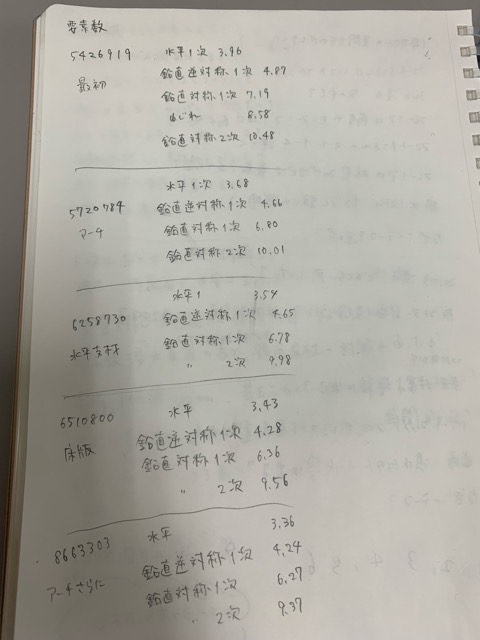 要素数
5426919 水平1次 3.96
最初 鉛直逆対称1次 4.87
鉛直対称1次 7.19
ねじれ 8.58
鉛直対称2次 10.48
水平1次 3.68
5720784 鉛直逆対称1次 4.66
アーチ 鉛直対称1次 6.80
鉛直対称2次 10.01
水平1 3.54
6258730 鉛直逆対称1次 4.65
水平支材 鉛直対称1次 6.78
〃 2次 9.98
6510800 水平 3.43
床版 鉛直逆対称1次 4.28
鉛直対称1次 6.36
〃 2次 9.56
8663303 水平 3.36
アーチさらに 鉛直逆対称1次 4.24
鉛直対称1次 6.27
〃 2次 9.37